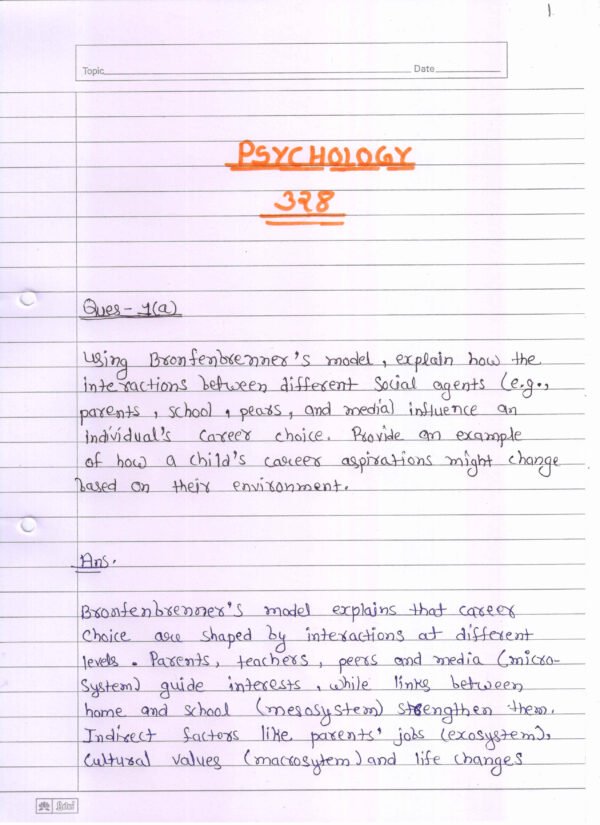 1
Topic Date
PSYCHOLOGY
328
Ques - 1(a)
Using Bronfenbrenner's model, explain how the
interactions between different social agents (e.g.,
parents, school, pears, and media) influence an
individual's career choice. Provide an example
of how a child's career aspirations might change
based on their environment.
Ans.
Bronfenbrenner's model explains that career
choice are shaped by interactions at different
levels. Parents, teachers, peers and media (micro-
system) guide interests, while links between
home and school (mesosystem) strengthen them.
Indirect factors like parents' jobs (exosystem),
cultural values (macrosytem) and life changes